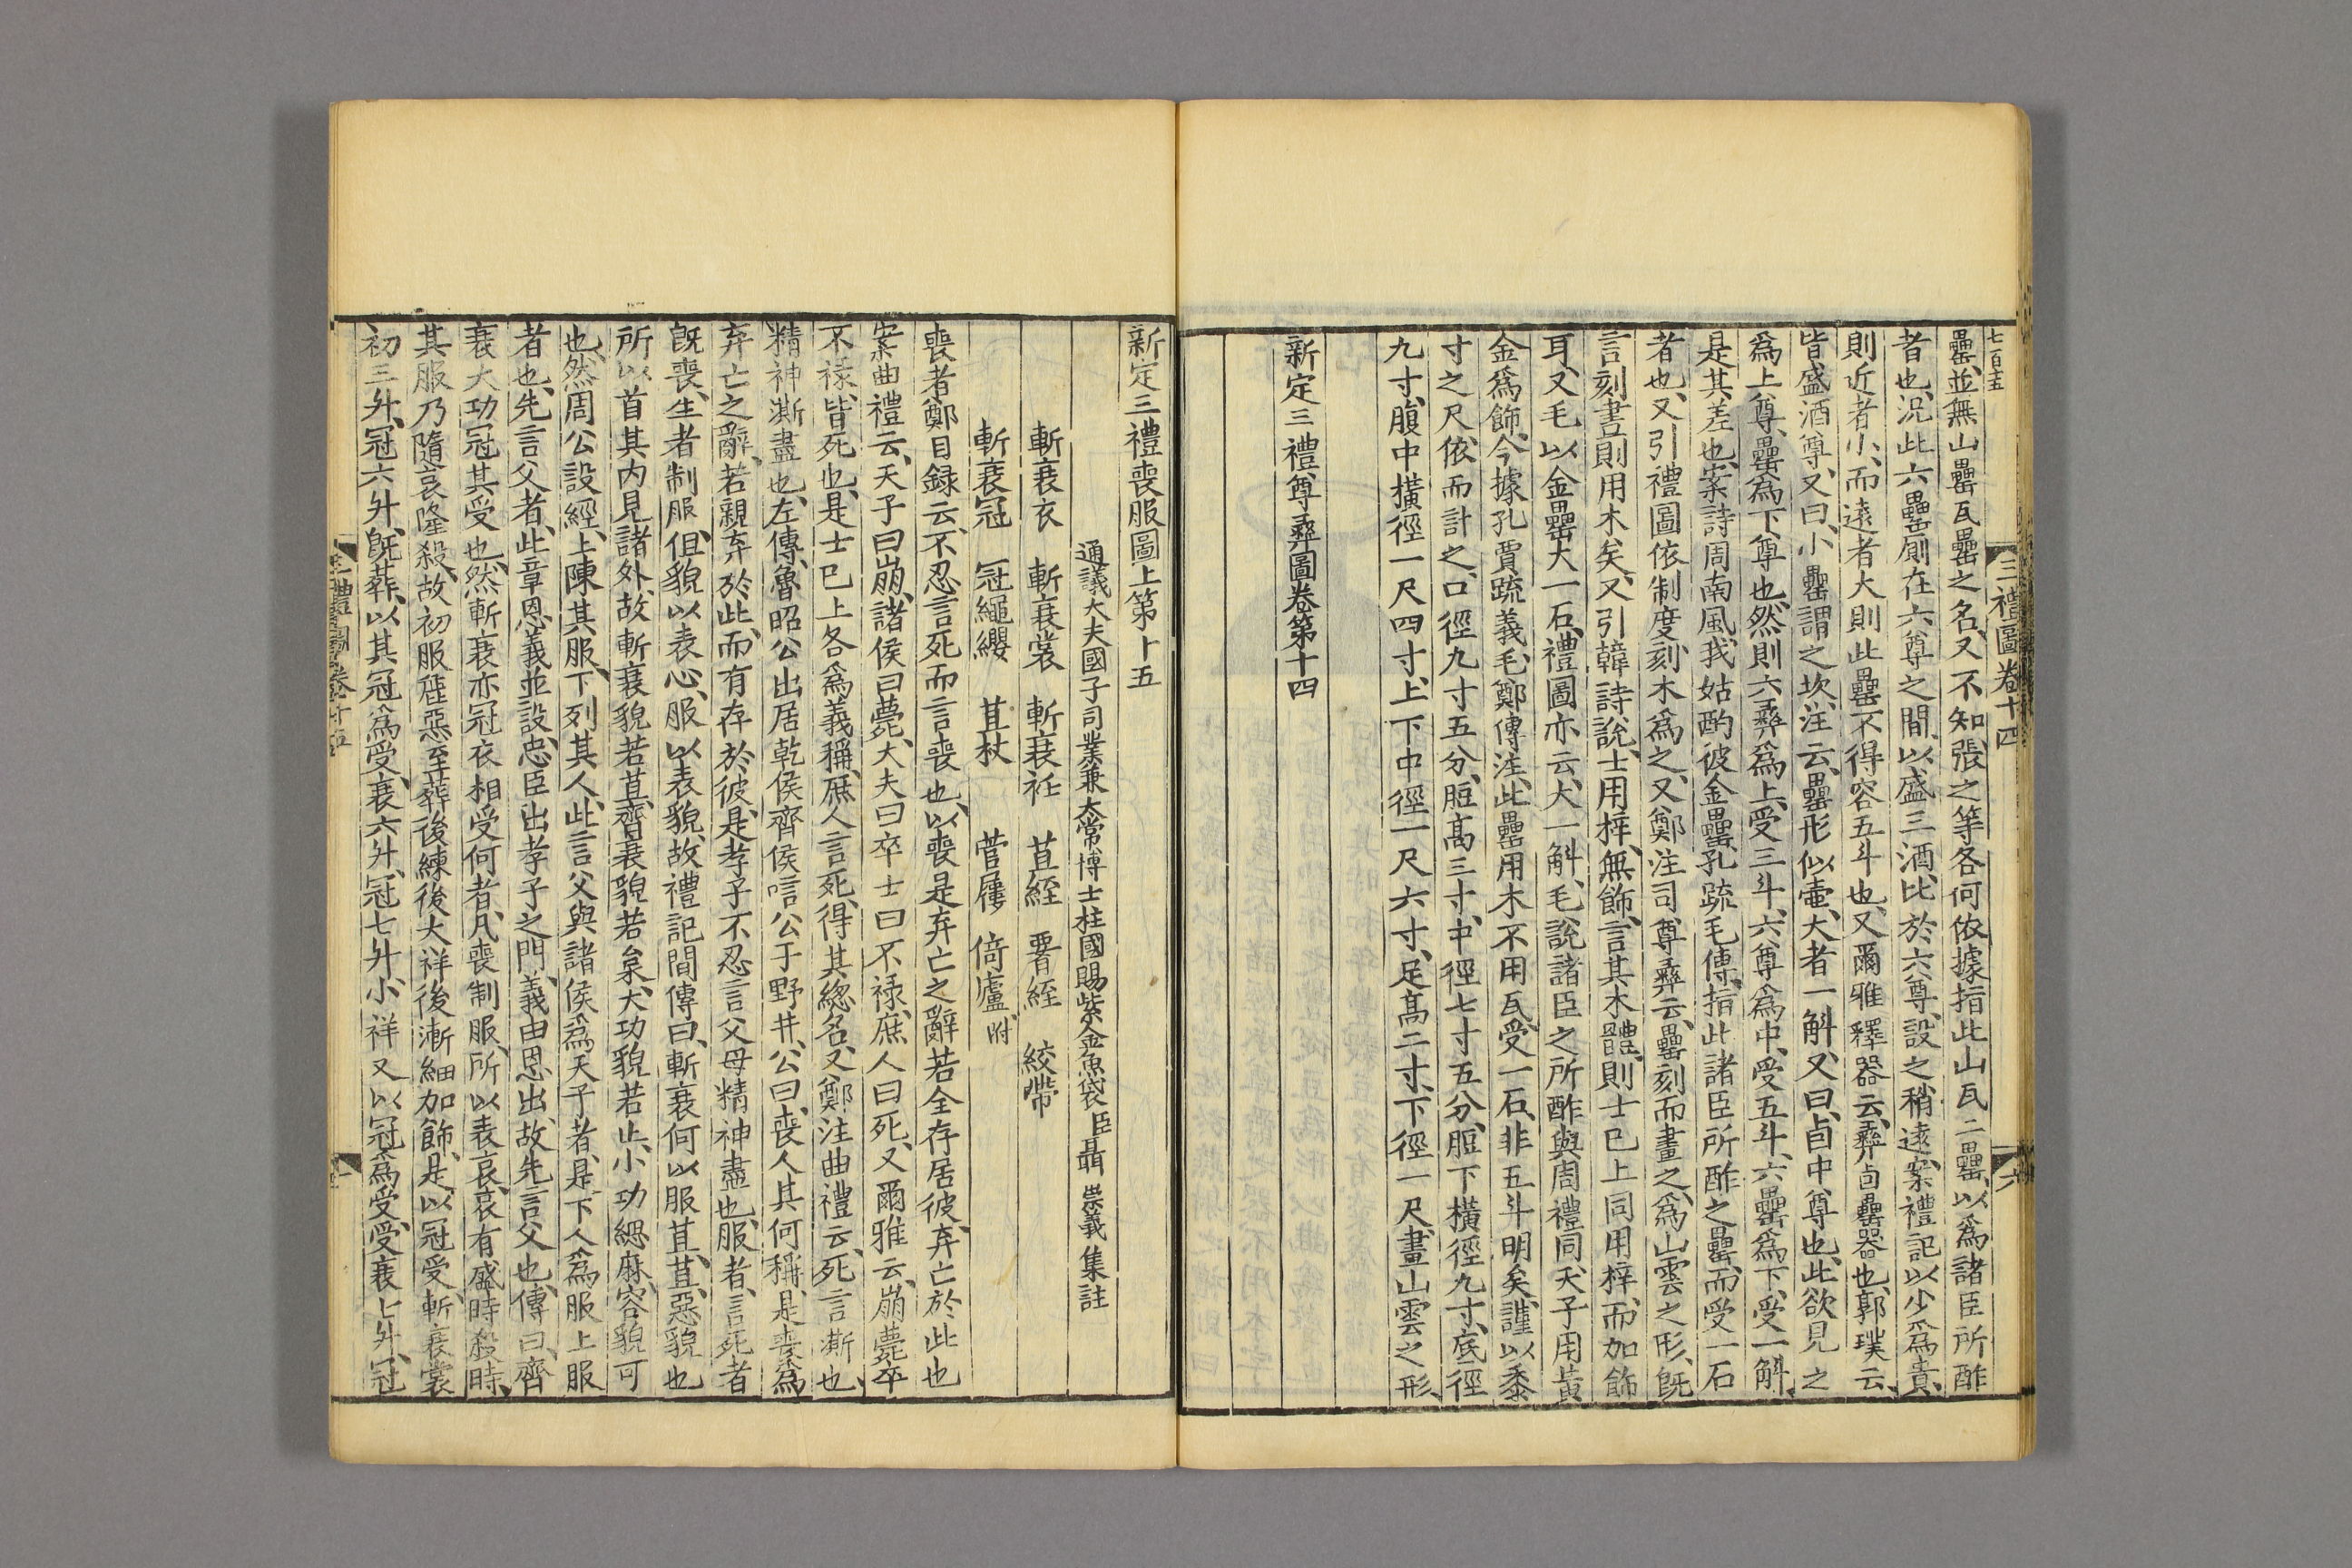 七百圭
三禮圖卷十四
六
罍並無山罍瓦罍之名又不知張之等各何依據指此山瓦二罍以爲諸臣所酢
者也況此六罍厠在六尊之間以盛三酒比於六尊設之稍遠案禮記以少爲貴
則近者小而遠者大則此罍不得容五斗也又爾雅釋器云彛卣罍器也郭璞云
皆盛酒尊又曰小罍謂之坎注云罍形似壷大者一斛又曰卣中尊也此欲見之
爲上尊罍爲下尊也然則六彛爲上受三斗六尊爲中受五斗六罍爲下受一斛
是其差也案詩周南風我姑酌彼金罍孔疏毛傳指此諸臣所酢之罍而受一石
者也又引禮圖依制度刻木爲之又鄭注司尊彛云罍刻而畫之爲山雲之形旣
言刻畫則用木矣又引韓詩說士用梓無飾言其木體則士已上同用梓而加飾
耳又毛以金罍大一石禮圖亦云大一斛毛說諸臣之所酢與周禮同天子用黃
金爲飾今據孔賈疏義毛鄭傳注此罍用木不用瓦受一石非五斗明矣謹以黍
寸之尺依而計之口徑九寸五分脰高三寸中徑七寸五分脰下橫徑九寸底徑
九寸腹中橫徑一尺四寸上下中徑一尺六寸足高二寸下徑一尺畫山雲之形
新定三禮尊彛圖卷第十四
新定三禮喪服圖上第十五
通議大夫國子司業兼太常博士柱國賜紫金魚袋臣聶崇義集註
斬衰衣 斬衰裳 斬衰衽 苴絰 署絰 絞帶
斬衰冠 冠繩纓 苴杖 菅屨 倚廬附
喪者鄭目録云不忍言死而言喪也以喪是弃亡之辭若全存居彼弃亡於此也
案曲禮云天子曰崩諸侯曰薨大夫曰卒士曰不禄庶人曰死又爾雅云崩薨卒
不禄皆死也是士已上各爲義稱庶人言死得其緫名又鄭注曲禮云死言澌也
精神澌盡也左傳魯昭公出居乾侯齊侯唁公于野井公曰喪人其何稱是喪爲
弃亡之辭若親弃於此而有存於彼是孝子不忍言父母精神盡也服者言死者
旣喪生者制服但貌以表心服以表貌故禮記間傳曰斬衰何以服苴苴惡貌也
所以首其内見諸外故斬衰貌若苴齊衰貌若枲大功貌若止小功緦麻容貌可
也然周公設經上陳其服下列其人此言父與諸侯爲天子者是下人爲服上服
者也先言父者此章恩義並設忠臣出孝子之門義由恩出故先言父也傳曰齊
衰大功冠其受也然斬衰亦冠衣相受何者凡喪制服所以表哀哀有盛時殺時
其服乃隨哀隆殺故初服麤惡至葬後練後大祥後漸細加飾是以冠受斬衰裳
初三升冠六升旣葬以其冠爲受衰六升冠七升小祥又以冠爲受受衰七升冠
三禮圖卷十五
一